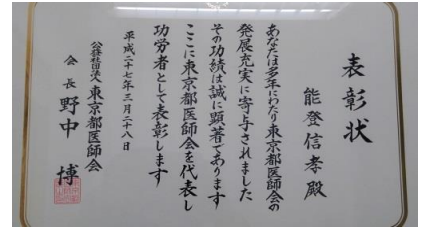 表彰状
能登信孝殿
あなたは多年にわたり東京都医師会の
発展充実に寄与されました
その功績は誠に顕著であります
ここに東京都医師会を代表し
功労者として表彰します
平成二十七年三月二十八日
公益社団法人東京都医師会
会長野中博